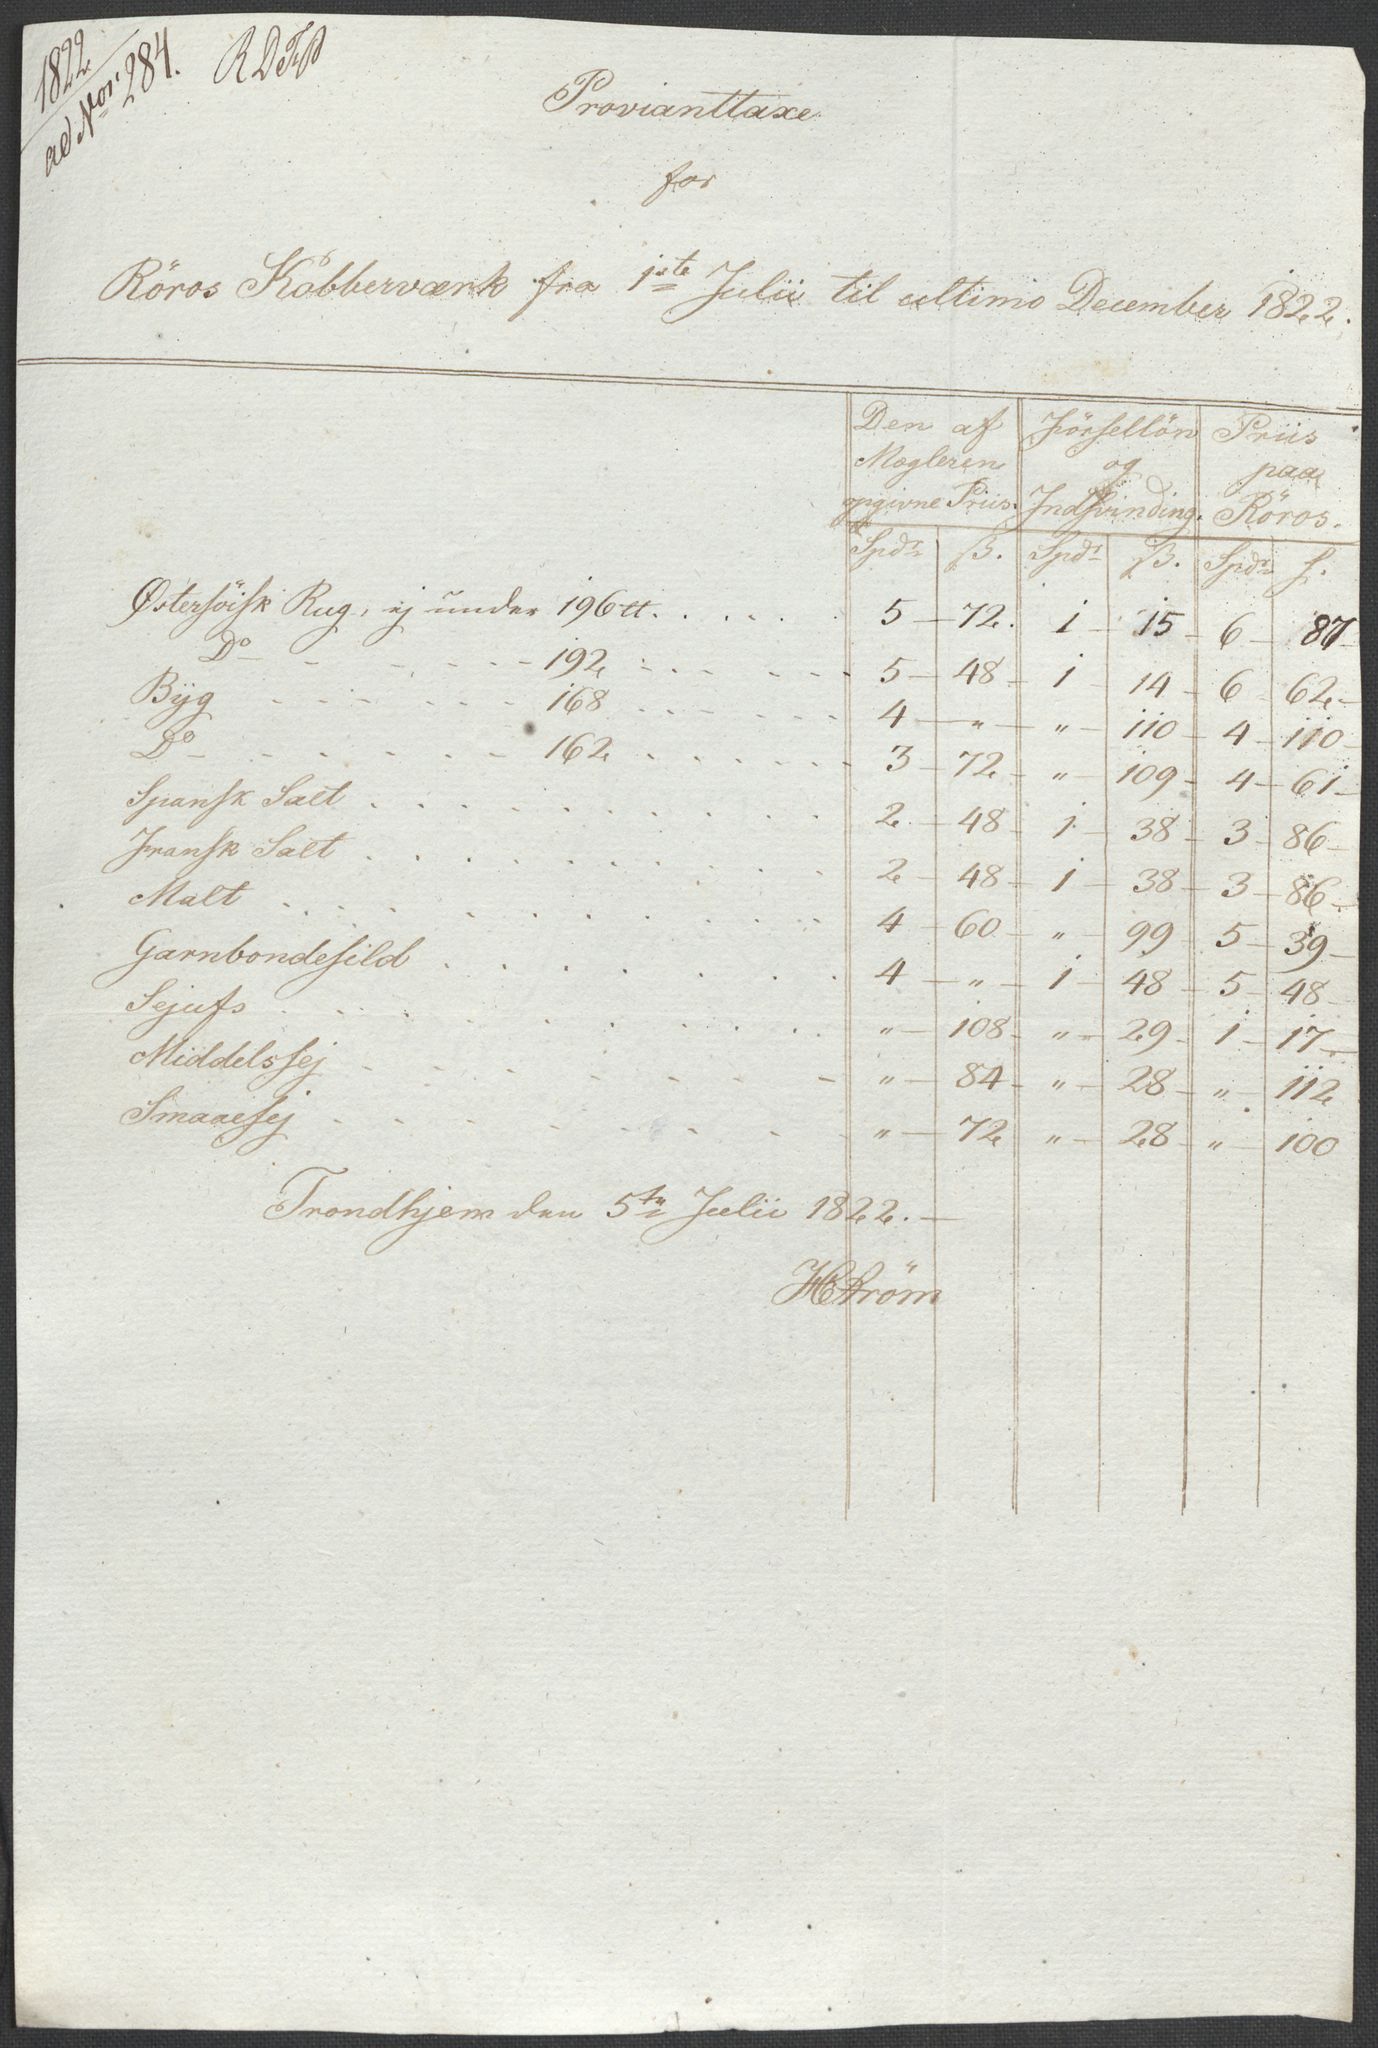 1822
ad No: 284.
Provianttaxe
for
Röros Kobberværk fra 1ste Julii til ultimo December 1822.
Den af Mægleren opgivne Priis. Försellön og Indsvinding. Priis paa Röros.
Spdr ß. Spdr ß. Spdr ß.
Østersöisk Rug, ej under 196 tt. . . . . . 5 - 72. 1 - 15 - 6 - 87 -
Do - - - - - - 192 - - - - - 5 - 48 - 1 - 14 - 6 - 62 -
Byg - - - - - - 168 - - - - - 4 - " - " - 110 - 4 - 110 -
Do - - - - - - 162 . . . . . . 3 - 72 - " - 109 - 4 - 61 -
Spansk Salt . . . . . . . . . . 2 - 48 - 1 - 38 - 3 - 86 -
Fransk Salt . . . . . . . . . . 2 - 48 - 1 - 38 - 3 - 86 -
Malt . . . . . . . . . . . . 4 - 60 - " - 99 - 5 - 39 -
Garnbondesild . . . . . . . . 4 - " - 1 - 48 - 5 - 48 -
Sejufs . . . . . . . . . . . . " - 108 - " - 29 - 1 - 17 -
Middelssej - - - - - - - - - " - 84 - " - 28 - " - 112
Smaaesej - - - - - - - - - " - 72 - " - 28 - " - 100
Trondhjem den 5te Julii 1822. -
HStröm